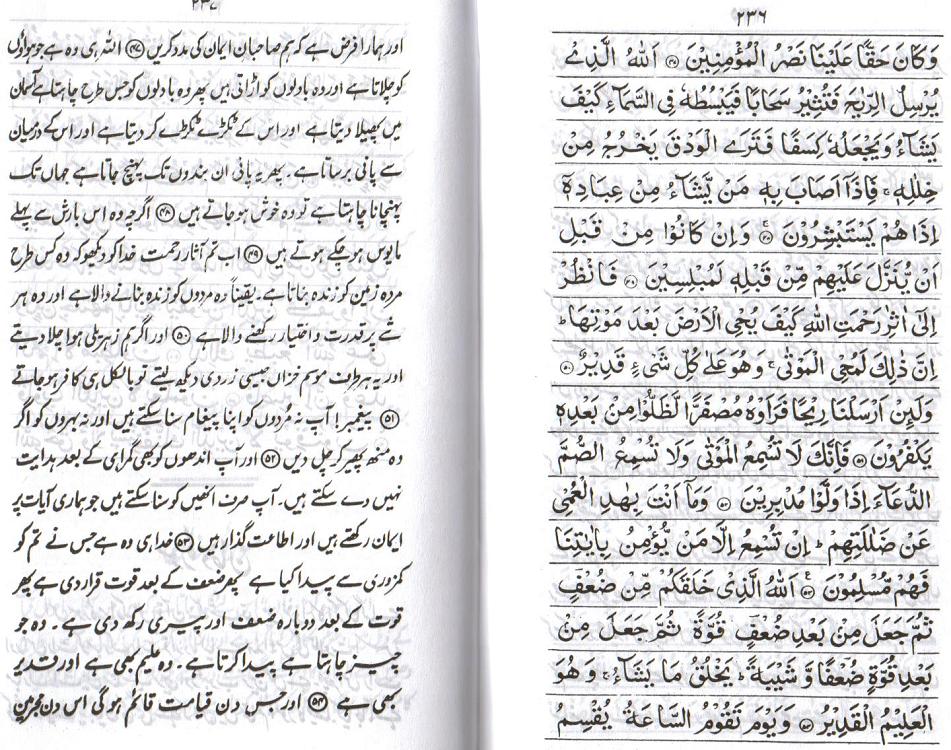 ۲۳۶
وَكَانَ حَقًّا عَلَيْنَا نَصْرُ الْمُؤْمِنِيْنَ ۴۷ اَللّٰهُ الَّذِیْ
يُرْسِلُ الرِّيٰحَ فَتُثِيْرُ سَحَابًا فَيَبْسُطُهٗ فِی السَّمَآءِ كَيْفَ
يَشَآءُ وَيَجْعَلُهٗ كِسَفًا فَتَرَى الْوَدْقَ يَخْرُجُ مِنْ
خِلٰلِهٖ ۚ فَاِذَاۤ اَصَابَ بِهٖ مَنْ يَّشَآءُ مِنْ عِبَادِهٖۤ
اِذَا هُمْ يَسْتَبْشِرُوْنَ ۴۸ وَاِنْ كَانُوْا مِنْ قَبْلِ
اَنْ يُّنَزَّلَ عَلَيْهِمْ مِّنْ قَبْلِهٖ لَمُبْلِسِيْنَ ۴۹ فَانْظُرْ
اِلٰۤى اٰثٰرِ رَحْمَتِ اللّٰهِ كَيْفَ يُحْیِ الْاَرْضَ بَعْدَ مَوْتِهَا ؕ
اِنَّ ذٰلِكَ لَمُحْیِ الْمَوْتٰى ۚ وَهُوَ عَلٰى كُلِّ شَیْءٍ قَدِيْرٌ ۵۰
وَلَئِنْ اَرْسَلْنَا رِيْحًا فَرَاَوْهُ مُصْفَرًّا لَّظَلُّوْا مِنْ بَعْدِهٖ
يَكْفُرُوْنَ ۵۱ فَاِنَّكَ لَا تُسْمِعُ الْمَوْتٰى وَلَا تُسْمِعُ الصُّمَّ
الدُّعَآءَ اِذَا وَلَّوْا مُدْبِرِيْنَ ۵۲ وَمَاۤ اَنْتَ بِهٰدِ الْعُمْیِ
عَنْ ضَلٰلَتِهِمْ ؕ اِنْ تُسْمِعُ اِلَّا مَنْ يُّؤْمِنُ بِاٰيٰتِنَا
فَهُمْ مُّسْلِمُوْنَ ۵۳ اَللّٰهُ الَّذِیْ خَلَقَكُمْ مِّنْ ضُعْفٍ
ثُمَّ جَعَلَ مِنْ بَعْدِ ضُعْفٍ قُوَّةً ثُمَّ جَعَلَ مِنْ
بَعْدِ قُوَّةٍ ضُعْفًا وَّ شَيْبَةً ؕ يَخْلُقُ مَا يَشَآءُ ۚ وَهُوَ
الْعَلِيْمُ الْقَدِيْرُ ۵۴ وَيَوْمَ تَقُوْمُ السَّاعَةُ يُقْسِمُ
۲۳۷
اور ہمارا فرض ہے کہ ہم صاحبان ایمان کی مدد کریں ۴۷ اللہ ہی وہ ہے جو ہواؤں
کو چلاتا ہے اور وہ بادلوں کو اڑاتی ہیں پھر وہ بادلوں کو جس طرح چاہتا ہے آسمان
میں پھیلا دیتا ہے اور اس کے ٹکڑے ٹکڑے کر دیتا ہے اور اس کے درمیان
سے پانی برساتا ہے۔ پھر یہ پانی ان بندوں تک پہنچ جاتا ہے جہاں تک
پہنچانا چاہتا ہے تو وہ خوش ہو جاتے ہیں ۴۸ اگرچہ وہ اس بارش سے پہلے
مایوس ہو چکے ہوتے ہیں ۴۹ اب تم آثار رحمت خدا کو دیکھو کہ وہ کس طرح
مردہ زمین کو زندہ بناتا ہے۔ یقیناً وہ مردوں کو زندہ بنانے والا ہے اور وہ ہر
شے پر قدرت و اختیار رکھنے والا ہے ۵۰ اور اگر ہم زہریلی ہوا چلا دیتے
اور یہ ہر طرف موسم خزاں جیسی زردی دیکھ لیتے تو بالکل ہی کافر ہو جاتے
۵۱ پیغمبر! آپ نہ مُردوں کو اپنا پیغام سنا سکتے ہیں اور نہ بہروں کو اگر
وہ منھ پھیر کر چل دیں ۵۲ اور آپ اندھوں کو بھی گمراہی کے بعد ہدایت
نہیں دے سکتے ہیں۔ آپ صرف انھیں کو سنا سکتے ہیں جو ہماری آیات پر
ایمان رکھتے ہیں اور اطاعت گذار ہیں ۵۳ خدا ہی وہ ہے جس نے تم کو
کمزوری سے پیدا کیا ہے پھر ضعف کے بعد قوت قرار دی ہے پھر
قوت کے بعد دوبارہ ضعف اور پیری رکھ دی ہے۔ وہ جو
چیز چاہتا ہے پیدا کرتا ہے۔ وہ علیم بھی ہے اور قدیر
بھی ہے ۵۴ اور جس دن قیامت قائم ہو گی اس دن مجرمین